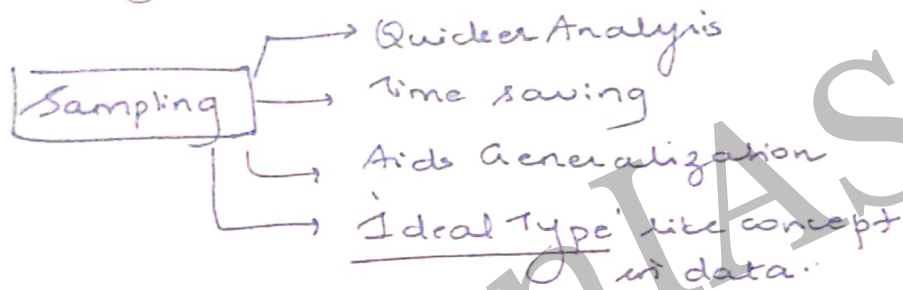 Sampling
Quicker Analysis
Time saving
Aids Generalization
'Ideal Type' like concept
in data.
IAS